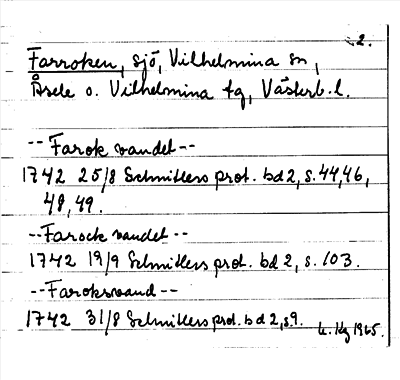 2.
Farroken, sjö, Vilhelmina sn,
Åsele o. Vilhelmina tg, Västerb. l.
-- Farok vandet --
1742 25/8 Schnitlers prot. bd 2, s. 44, 46,
48, 49.
-- Farock vandet --
1742 19/9 Schnitlers prot. bd 2, s. 103.
-- Farokswand --
1742 31/8 Schnitlers prot. bd 2, s 9.
1965.